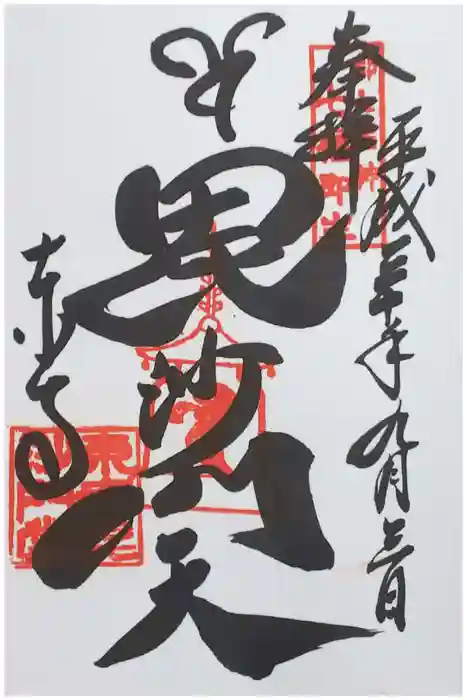 奉拝
平成三十年九月三日
毘沙門天
東寺